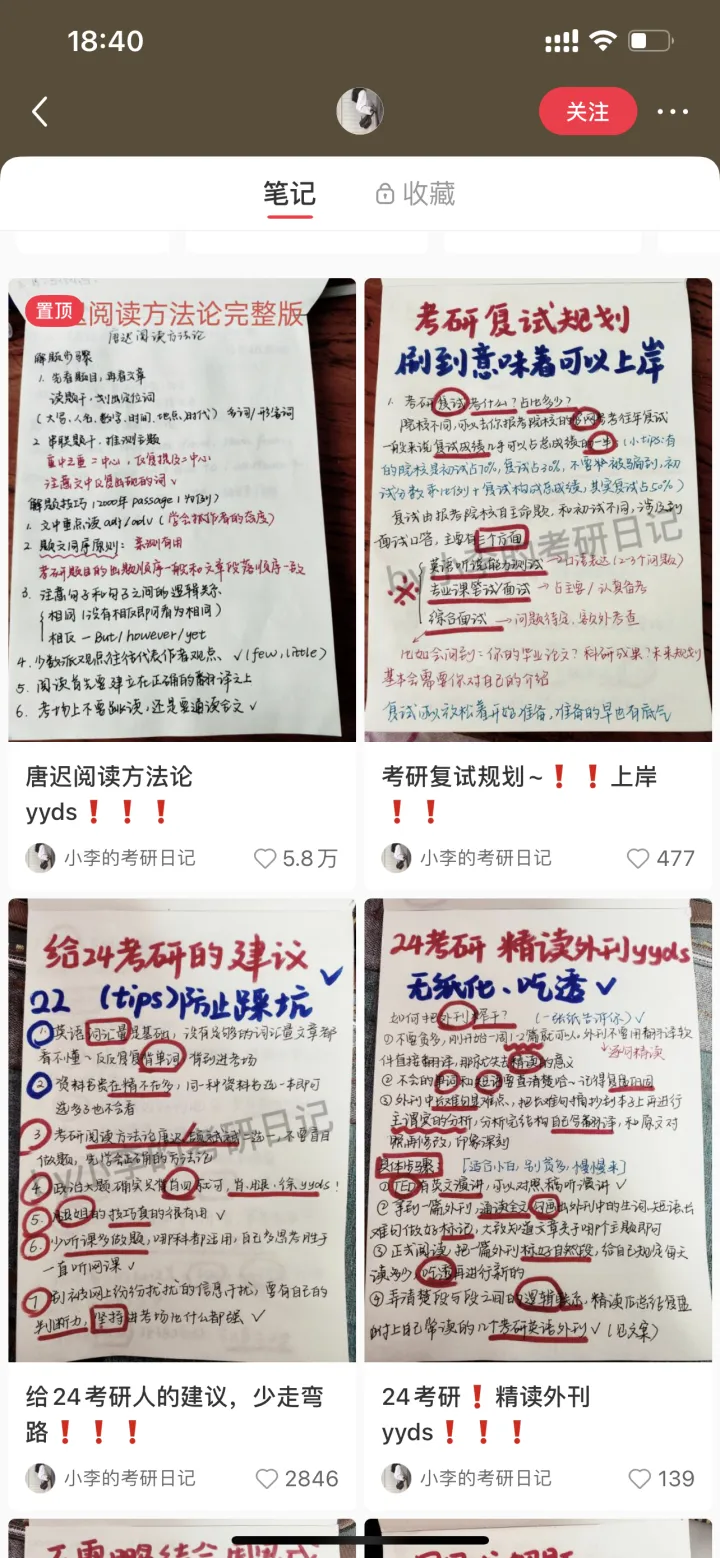 18:40
关注
笔记
收藏
置顶
阅读方法论完整版
唐迟阅读方法论
解题步骤
1. 先看题目,再看文章
读题干,划出定位词
(大写、人名、数字、时间、地点、时代) 多词/形容词
2. 串联题干,推测主题
重中之重=中心,反复提及=中心
注意文中反复出现的词√
解题技巧(2000年 passage 1为例)
1. 文中重点读 adj/adv (学会抓作者的态度)
2. 题文同序原则: 亲测有用
考研题目的出题顺序一般和文章段落顺序一致
3. 注意句子和句子之间的逻辑关系
相同(没有相反即可看为相同)
相反 - But/however/yet
4. 少数派观点往往代表作者观点、√(few, little)
5. 阅读首先要建立在正确的翻译之上
6. 考场上不要跳读,还是要通读全文√
唐迟阅读方法论
yyds❗❗❗
小李的考研日记
5.8万
考研复试规划
刷到意味着可以上岸
1. 考研复试考什么?占比多少?
院校不同,可以去你报考院校的官网参考往年复试
一般来说复试成绩几乎可以占总成绩的一半(小tips:有
的院校是初试占70%,复试占30%,不要被骗到,初
试分数乘比例+复试构成总成绩,其实复试占50%)
复试由报考院校自主命题,和初试不同,涉及到
面试口答,主要有三个方面
by小李的考研日记
英语听说能力测试→口语表达(2-3个问题)
专业课笔试/面试→占主要/认真备考
综合面试→问题待定,额外考查
比如会问到:你的毕业论文?科研成果?未来规划
基本会需要你对自己的介绍
复试可以放松着开始准备,准备的早也有底气
考研复试规划~❗❗上岸
❗❗
小李的考研日记
477
给24考研的建议
22 (tips)防止踩坑
1 英语词汇量是基础,没有足够的词汇量文章都
看不懂-反反复复背单词 背到进考场
2 资料书贵在精不在多,同一种资料书选一本即可
选多了也不会看
3 考研阅读方法论唐迟、颉斌斌二选一,不要盲目
做题,先学会正确的方法论
by小李的考研日记
4. 政治大题确实只背肖四即可,肖、腿、徐yyds!
5. 腿姐的技巧真的很有用√
6. 少听课多做题,哪科都适用,自己多思考胜于
一直听网课√
7 别被网上纷纷扰扰的信息干扰,要有自己的
判断力,坚持进考场比什么都强√
给24考研人的建议,少走弯
路❗❗❗
小李的考研日记
2846
24考研 精读外刊yyds
无纸化、吃透√
如何把外刊搞于?(一张纸告诉你)√
①不要贪多,刚开始一周1-2篇就可以,外刊不要用翻译软
件直接翻译,那就失去精读的意义
②不会的单词和短语要查清楚哈-记得复盘巩固
③外刊中长难句是难点,把长难句摘抄到本子上再进行
主谓宾的分析,分析完结构自己写翻译,和原文对
照再修改,印象深刻
具体步骤: [适合小白,别贪多,慢慢来]
①TED有英文演讲,可以对照稿听演讲√
②拿到一篇外刊,通读全文勾画出外刊中的生词、短语、长
难句做好标记,大致知道文章关于哪个主题即可
③正式阅读,把一篇外刊标好自然段,给自己规定每天
读多少,吃透再进行新的
④弄清楚段与段之间的逻辑联系,精读后总结复盘
附上自己常读的几个考研英语外刊√(见文案)
24考研❗精读外刊
yyds❗❗❗
小李的考研日记
139